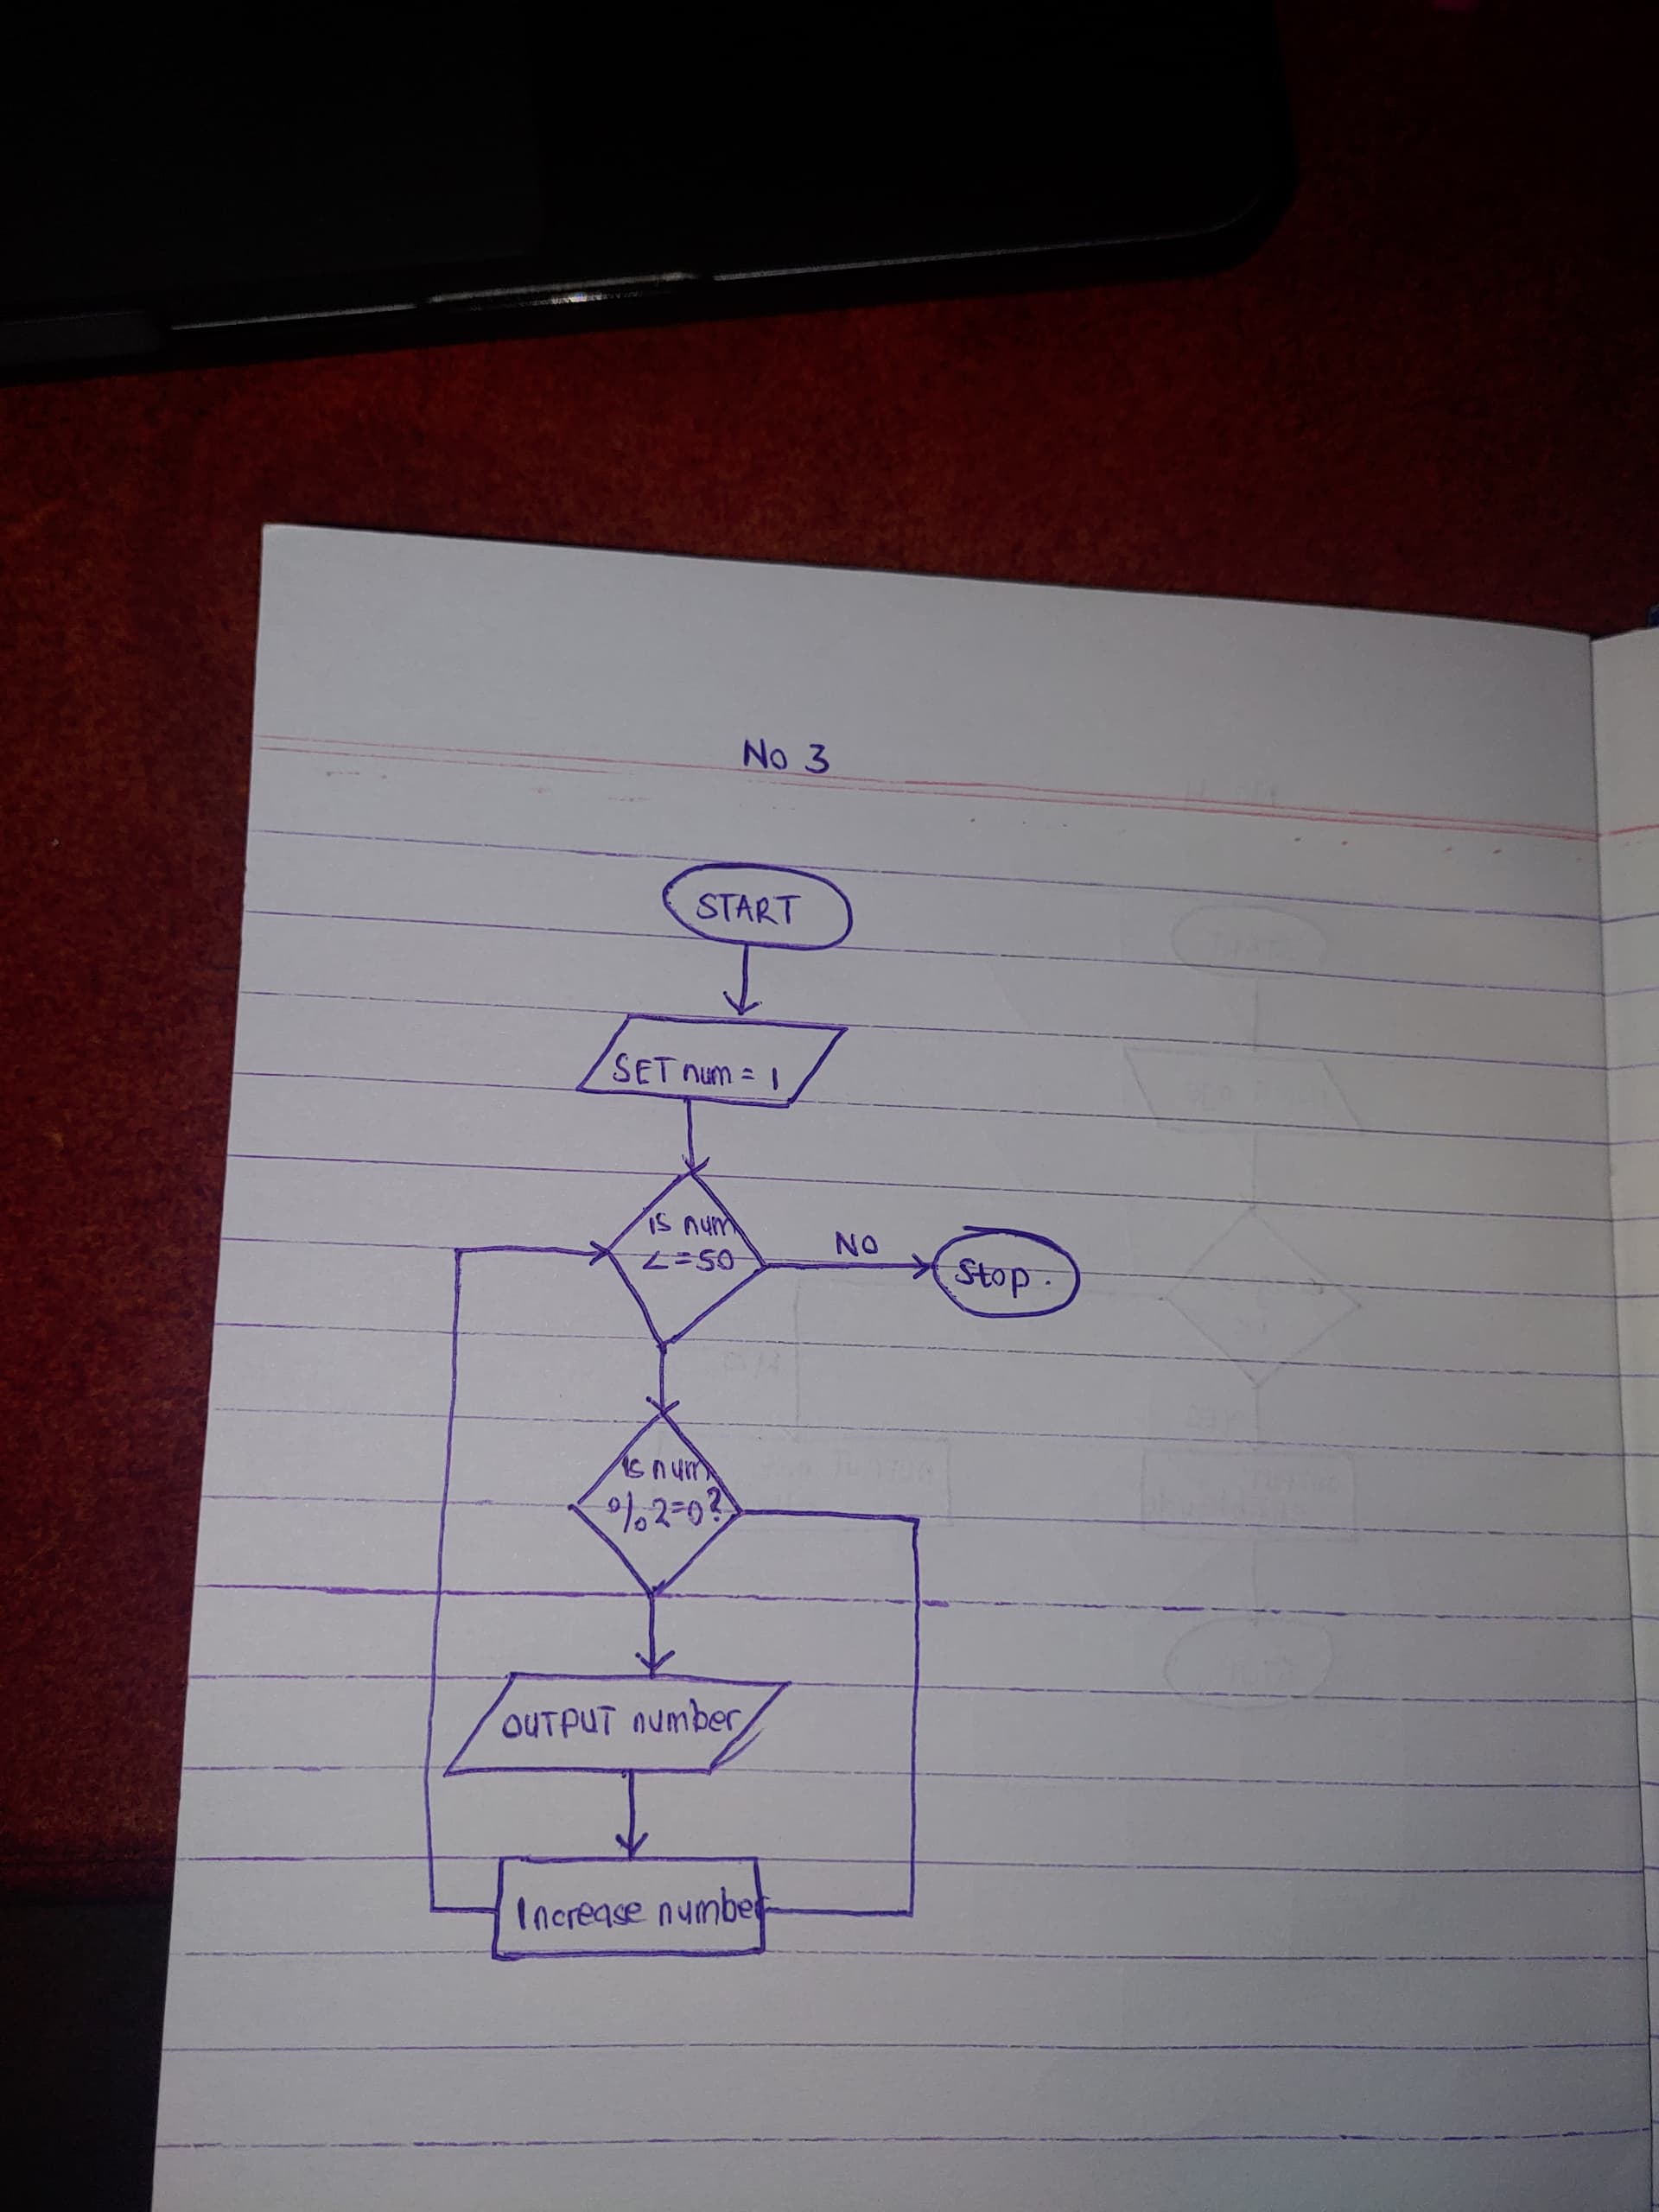 No 3
START
SET num = 1
is num
<=50
NO
Stop.
is num
%2=0?
OUTPUT number
Increase number